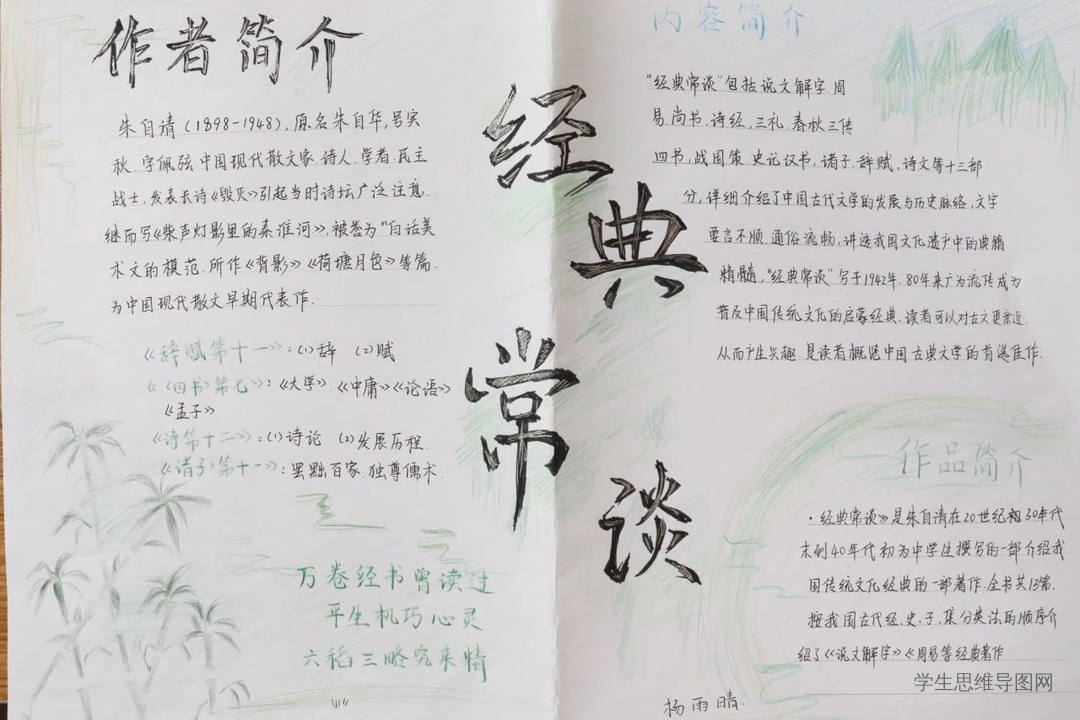 作者简介
朱自请（1898-1948），原名朱自华，号实
秋，字佩弦，中国现代散文家、诗人、学者、民主
战士，发表长诗《毁灭》引起当时诗坛广泛注意.
继而写《桨声灯影里的秦淮河》，被誉为"白话美
术文的模范.所作《背影》《荷塘月包》等篇.
为中国现代散文早期代表作.
《辞赋第十一》：(1)辞 (2)赋
《〈四书〉第七》：《大学》.《中庸》《论语》
《孟子》
《诗第十二》：(1)诗论 (2)发展历程
《诸子第十一》：罢黜百家.独尊儒术.
万卷经书曾读过
平生机巧心灵
六稻三略究来精
经典常谈
内容简介
"经典常谈"包括说文解字 周
易.尚书.诗经，三礼.春秋三传
四书，战国策 史记汉书，诸子.辞赋，诗文等十三部
分，详细介绍了中国古代文学的发展与历史脉络，文字
要言不顺.通俗流畅，讲述我国文化遗产中的典籍
精髓，"经典常谈"写于1942年.80年来广为流传成为
普及中国传统文化的启蒙经典.读者可以对古文更亲近.
从而产生兴趣.是读者概览中国古典文学的首选佳作.
作品简介
·经典常谈》是朱自请在20世纪30年代
末到40年代初为中学生撰写的一部介绍我
国传统文化经典的一部著作.全书共13篇.
按我国古代经、史、子，集分类法的顺序介
绍了《说文解字》《周易等经典著作
杨雨晴.
学生思维导图网